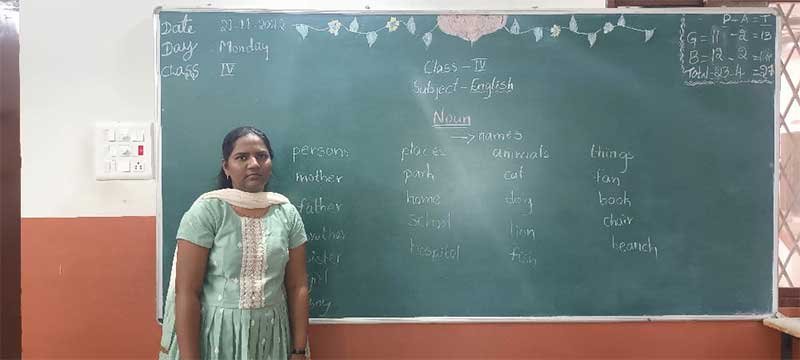 Date
Day Monday
Class IV
P - A = T
G = 11 - 2 = 13
B = 12 - 2 =
Total - 23 - 4 = 27
Class - IV
Subject - English
Noun
→ names
persons places animals things
mother park cat fan
father home dog book
school lion chair
sister hospital fish beanch